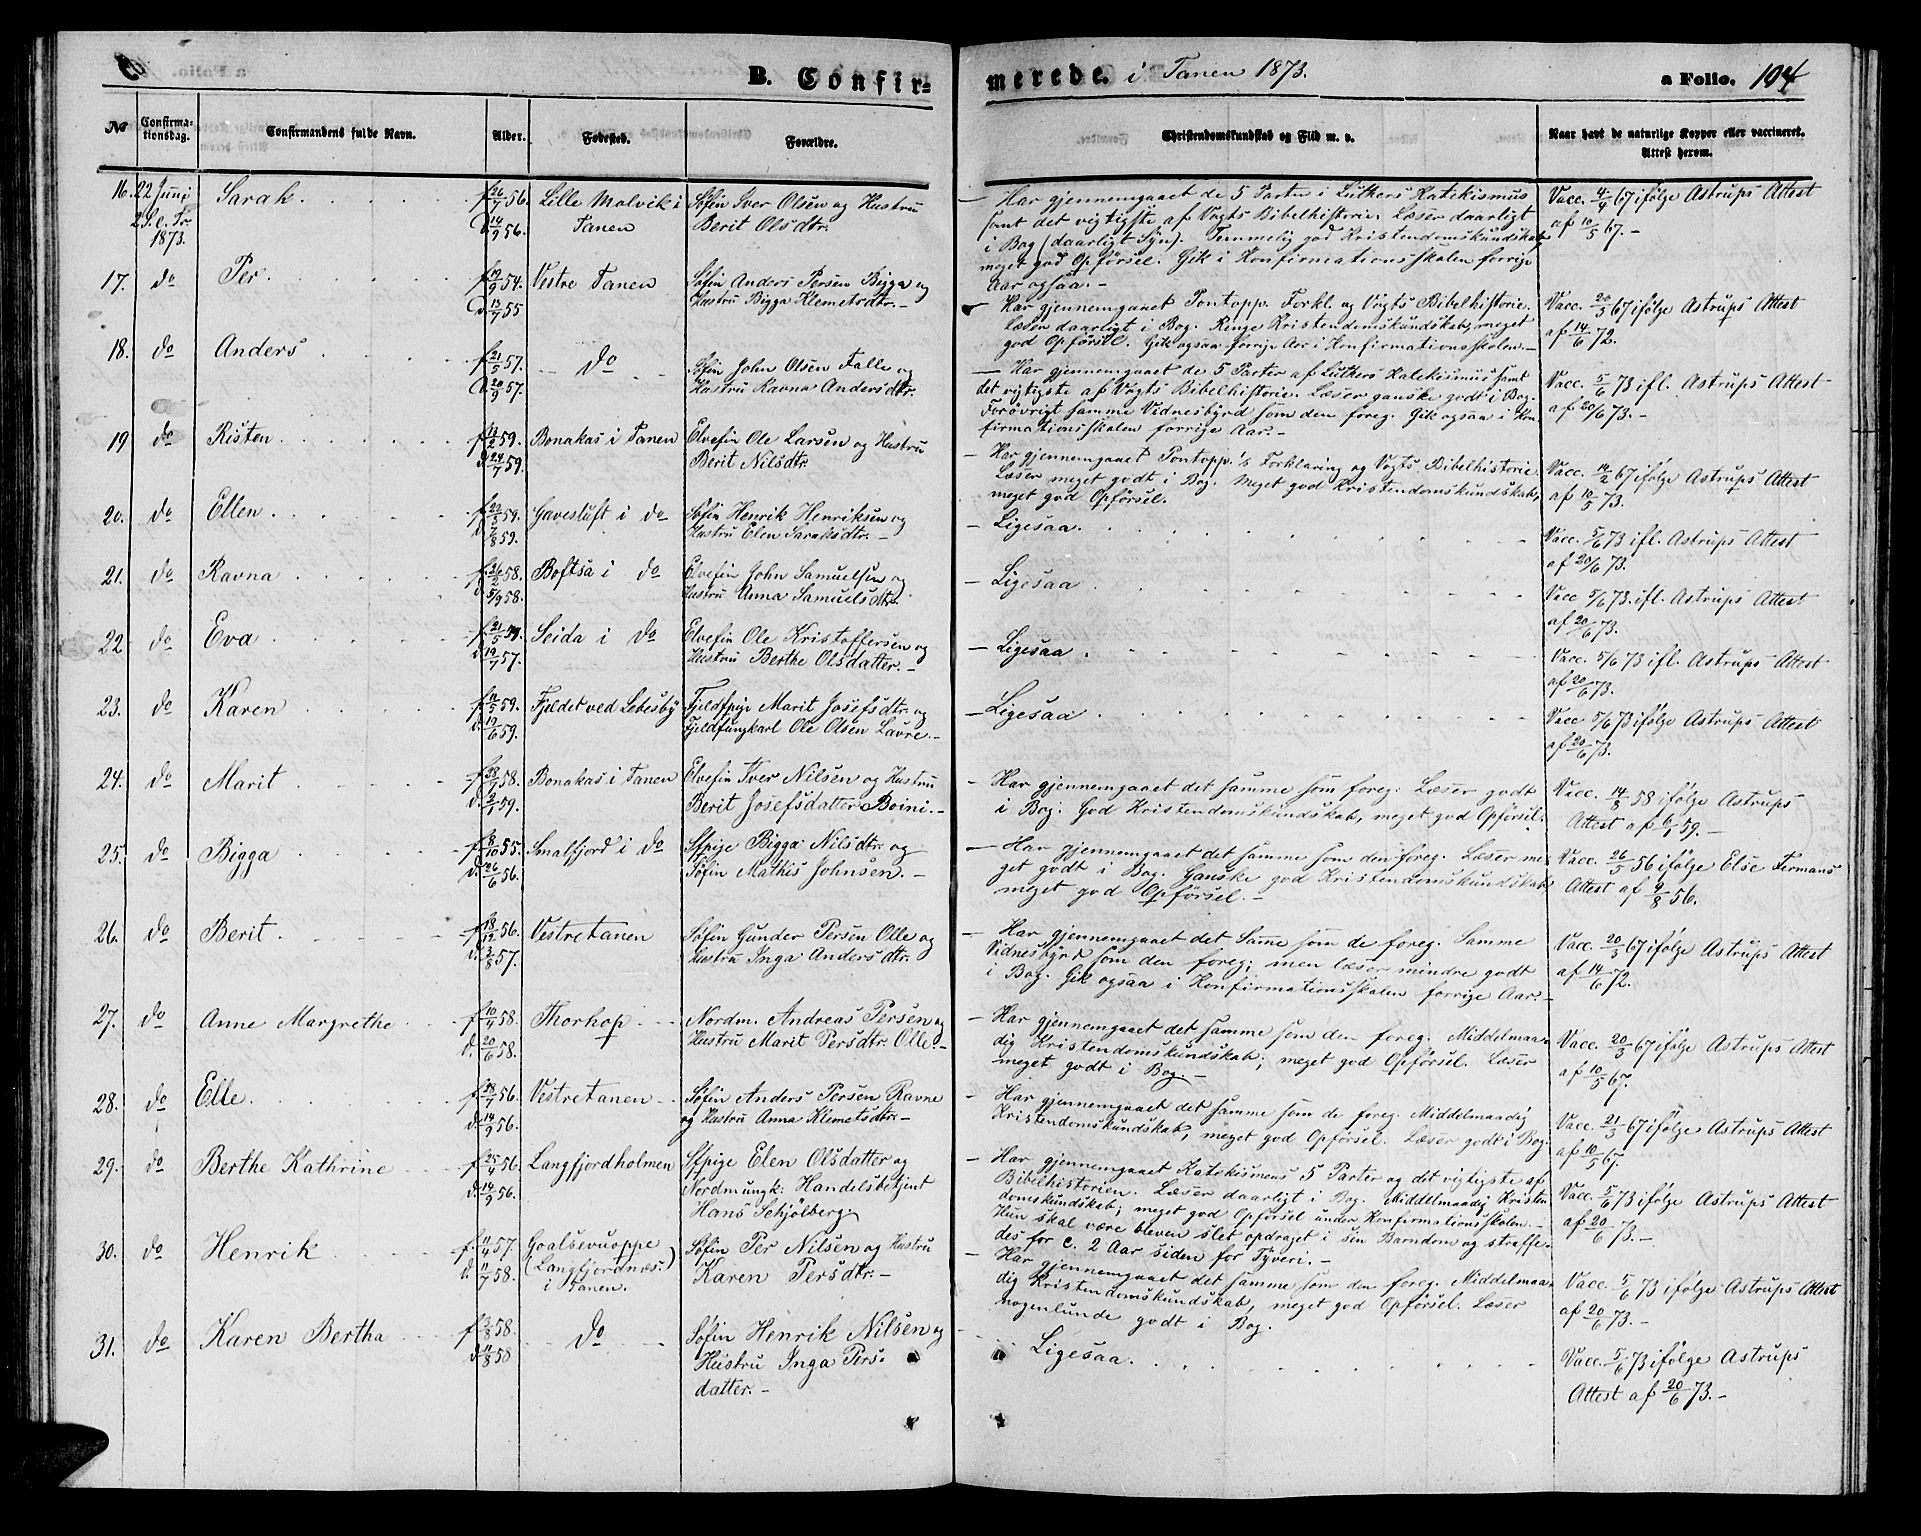 B. Confir-
merede. i Tanen 1873.
a Folio. 104
No
Confirma-
tionsdag.
Confirmandens fulde Navn.
Alder.
Fødested.
Forældre.
Christendomskundskab og Flid m. v.
Naar havt de naturlige Kopper eller vaccineret.
Attest herom.
16. 22 Juni
2 S. e. Tr.
1873.
Sarah
f 26/7 56.
d. 14/9 56.
Lille Molvik i
Tanen
Søfin Iver Olsen og Hustru
Berit Olsdtr.
- Har gjennemgaaet de 5 Parter i Luthers Katekismus
samt det vigtigste af Vogts Bibelhistorie. Læser daarligt
i Bog (daarligt Syn). Temmelig god Kristendomskundskab
meget god Opførsel. Gik i Konfirmationsskolen forrige
Aar ogsaa. -
Vacc. 4/4 67 ifølge Astrups Attest
af 10/5 67. -
17. do
Per
f 19/9 54.
d. 13/7 55
Vestre Tanen
Søfin Anders Persen Bigga og
Hustru Bigga Klemetsdtr. -
- Har gjennemgaaet Pontopp. Forkl. og Vogts Bibelhistorie.
Læser daarligt i Bog. Ringe Kristendomskundskab, meget
god Opførsel. Gik ogsaa forrige Aar i Konfirmationsskolen. -
Vacc. 20/3 67 ifølge Astrups Attest
af 14/6 72.
18. do
Anders
f 21/5 57.
d. 20/9 57.
do
Søfin John Olsen Falle og
Hustru Ravna Andersdtr.
- Har gjennemgaaet de 5 Parter af Luthers Katekismus samt
det vigtigste af Vogts Bibelhistorie. Læser ganske godt i Bog.
Forøvrigt samme Vidnesbyrd som den foreg. Gik ogsaa i Kon
firmationsskolen forrige Aar. -
Vacc. 5/6 73 ifl. Astrups Attest
af 20/6 73. -
19 do
Risten
f 11/2 59.
d. 24/7 59.
Bonakas i Tanen
Elvefin Ole Larsen og Hustru
Berit Nilsdtr
- Har gjennemgaaet Pontopp.'s Forklaring og Vogts Bibelhistorie.
Læser meget godt i Bog. Meget god Kristendomskundskab,
meget god Opførsel.
Vacc. 14/2 67 ifølge Astrups Attest
af 10/5 73.
20. do
Ellen
f 22/5 59.
d. 7/8 59.
Gavesluft i do
Søfin Henrik Henriksen og
Hustru Elen Sarahsdtr. -
- Ligesaa.
Vacc. 5/6 73 ifl. Astrups Attest
af 20/6 73.
21. do
Ravna
58.
d. 5/9 58.
Boftsa i do
Elvefin John Samuelsen og
Hustru Anna Samuelsdtr.
- Ligesaa
Vacc 5/6 73. ifl. Astrups Attest
af 20/6 73.
22. do
Eva
f 21/5 57.
d. 19/7 57.
Seida i do
Elvefin Ole Kristoffersen og
Hustru Berthe Olsdatter. -
- Ligesaa
Vacc. 5/6 73 ifl. Astrups Attest
af 20/6 73.
23. do
Karen
f 11/5 59.
d. 19/6 59.
Fjeldet ved Lebesby
Fjeldfpige Marit Josefsdtr. og
Fjeldfungkarl Ole Olsen Lavre. -
- Ligesaa
Vacc 5/6 73 ifølge Astrups Attest
af 20/6 73.
24. do
Marit
58.
d. 2/7 59.
Bonakas i Tanen
Elvefin Iver Nilsen og Hustru
Berit Josefsdatter Boini. -
- Har gjennemgaaet det samme som foreg. Læser godt
i Bog. God Kristendomskundskab, meget god Opførsel.
Vacc. 14/8 58 ifølge Astrups
Attest af 6/1 59. -
25. do
Bigga
f 8/10 55.
d. 26/6 56.
Smalfjord i do
Sfpige Bigga Nilsdtr. og
Søfin Mathis Johnsen. -
- Har gjennemgaaet det samme som den foreg. Læser me
get godt i Bog. Ganske god Kristendomskundskab
meget god Opførsel. -
Vacc. 26/5 56 ifølge Else Fermans
Attest af 9/8 56.
26. do
Berit
f 18/12 56.
d. 2/8 57.
Vestretanen
Søfin Gunder Persen Olle og
Hustru Inga Andersdtr.
- Har gjennemgaaet det Samme som de foreg. Samme
Vidnesbyrd som den foreg; men læser mindre godt
i Bog. Gik ogsaa i Konfirmationsskolen forrige Aar. -
Vacc. 20/3 67 ifølge Astrups Attest
af 14/6 72.
27. do
Anne Margrethe
f 10/4 58.
d. 20/6 58.
Thorhop
Nordm. Andreas Persen og
Hustru Marit Persdtr. Olle. -
- Har gjennemgaaet det samme som den foreg. Middelmaa-
dig Kristendomskundskab; meget god Opførsel. Læser
meget godt i Bog. -
Vacc. 20/3 67 ifølge Astrups Attest
af 10/5 67.
28. do
Elle
f 28/7 56.
d. 14/9 56.
Vestretanen
Søfin Anders Persen Ravne
og Hustru Anna Klemetsdtr. -
- Har gjennemgaaet det samme som de foreg. Middelmaadig
Kristendomskundskab, meget god Opførsel. Læser godt i Bog.
Vacc. 21/3 67 ifølge Astrups Attest
af 10/5 67.
29. do
Berthe Kathrine
f 25/4 56.
d. 14/9 56.
Langfjordholmen
Sfpige Elen Olsdatter og
Nordm ungk: Handelsbetjent
Hans Schjølberg.
- Har gjennemgaaet Katekismens 5 Parter og det vigtigste af
Bibelhistorien. Læser daarligt i Bog. Middelmaadig Kristen
domskundskab; meget god Opførsel under Konfirmationsskolen. -
Hun skal være bleven slet opdraget i sin Barndom og straffe-
des for c. 2 Aar siden for Tyveri. -
Vacc. 5/6 73 ifølge Astrups Attest
af 20/6 73. -
30. do
Henrik
f. 11/4 57.
d. 11/7 58.
Goalsevuoppe
(Langfjordnæs.)
i Tanen.
Søfin Per Nilsen og Hustru
Karen Persdtr. -
- Har gjennemgaaet det samme som den foreg. Middelmaa-
dig Kristendomskundskab, meget god Opførsel. Læser
nogenlunde godt i Bog.
Vacc. 5/6 73 ifølge Astrups Attest
af 20/6 73. -
31. do
Karen Bertha
f 3/8 58.
d. 11/8 58
do
Søfin Henrik Nilsen og
Hustru Inga Pers-
datter. -
Ligesaa.
Vacc. 5/6 73 ifølge Astrups
Attest af 20/6 73. -